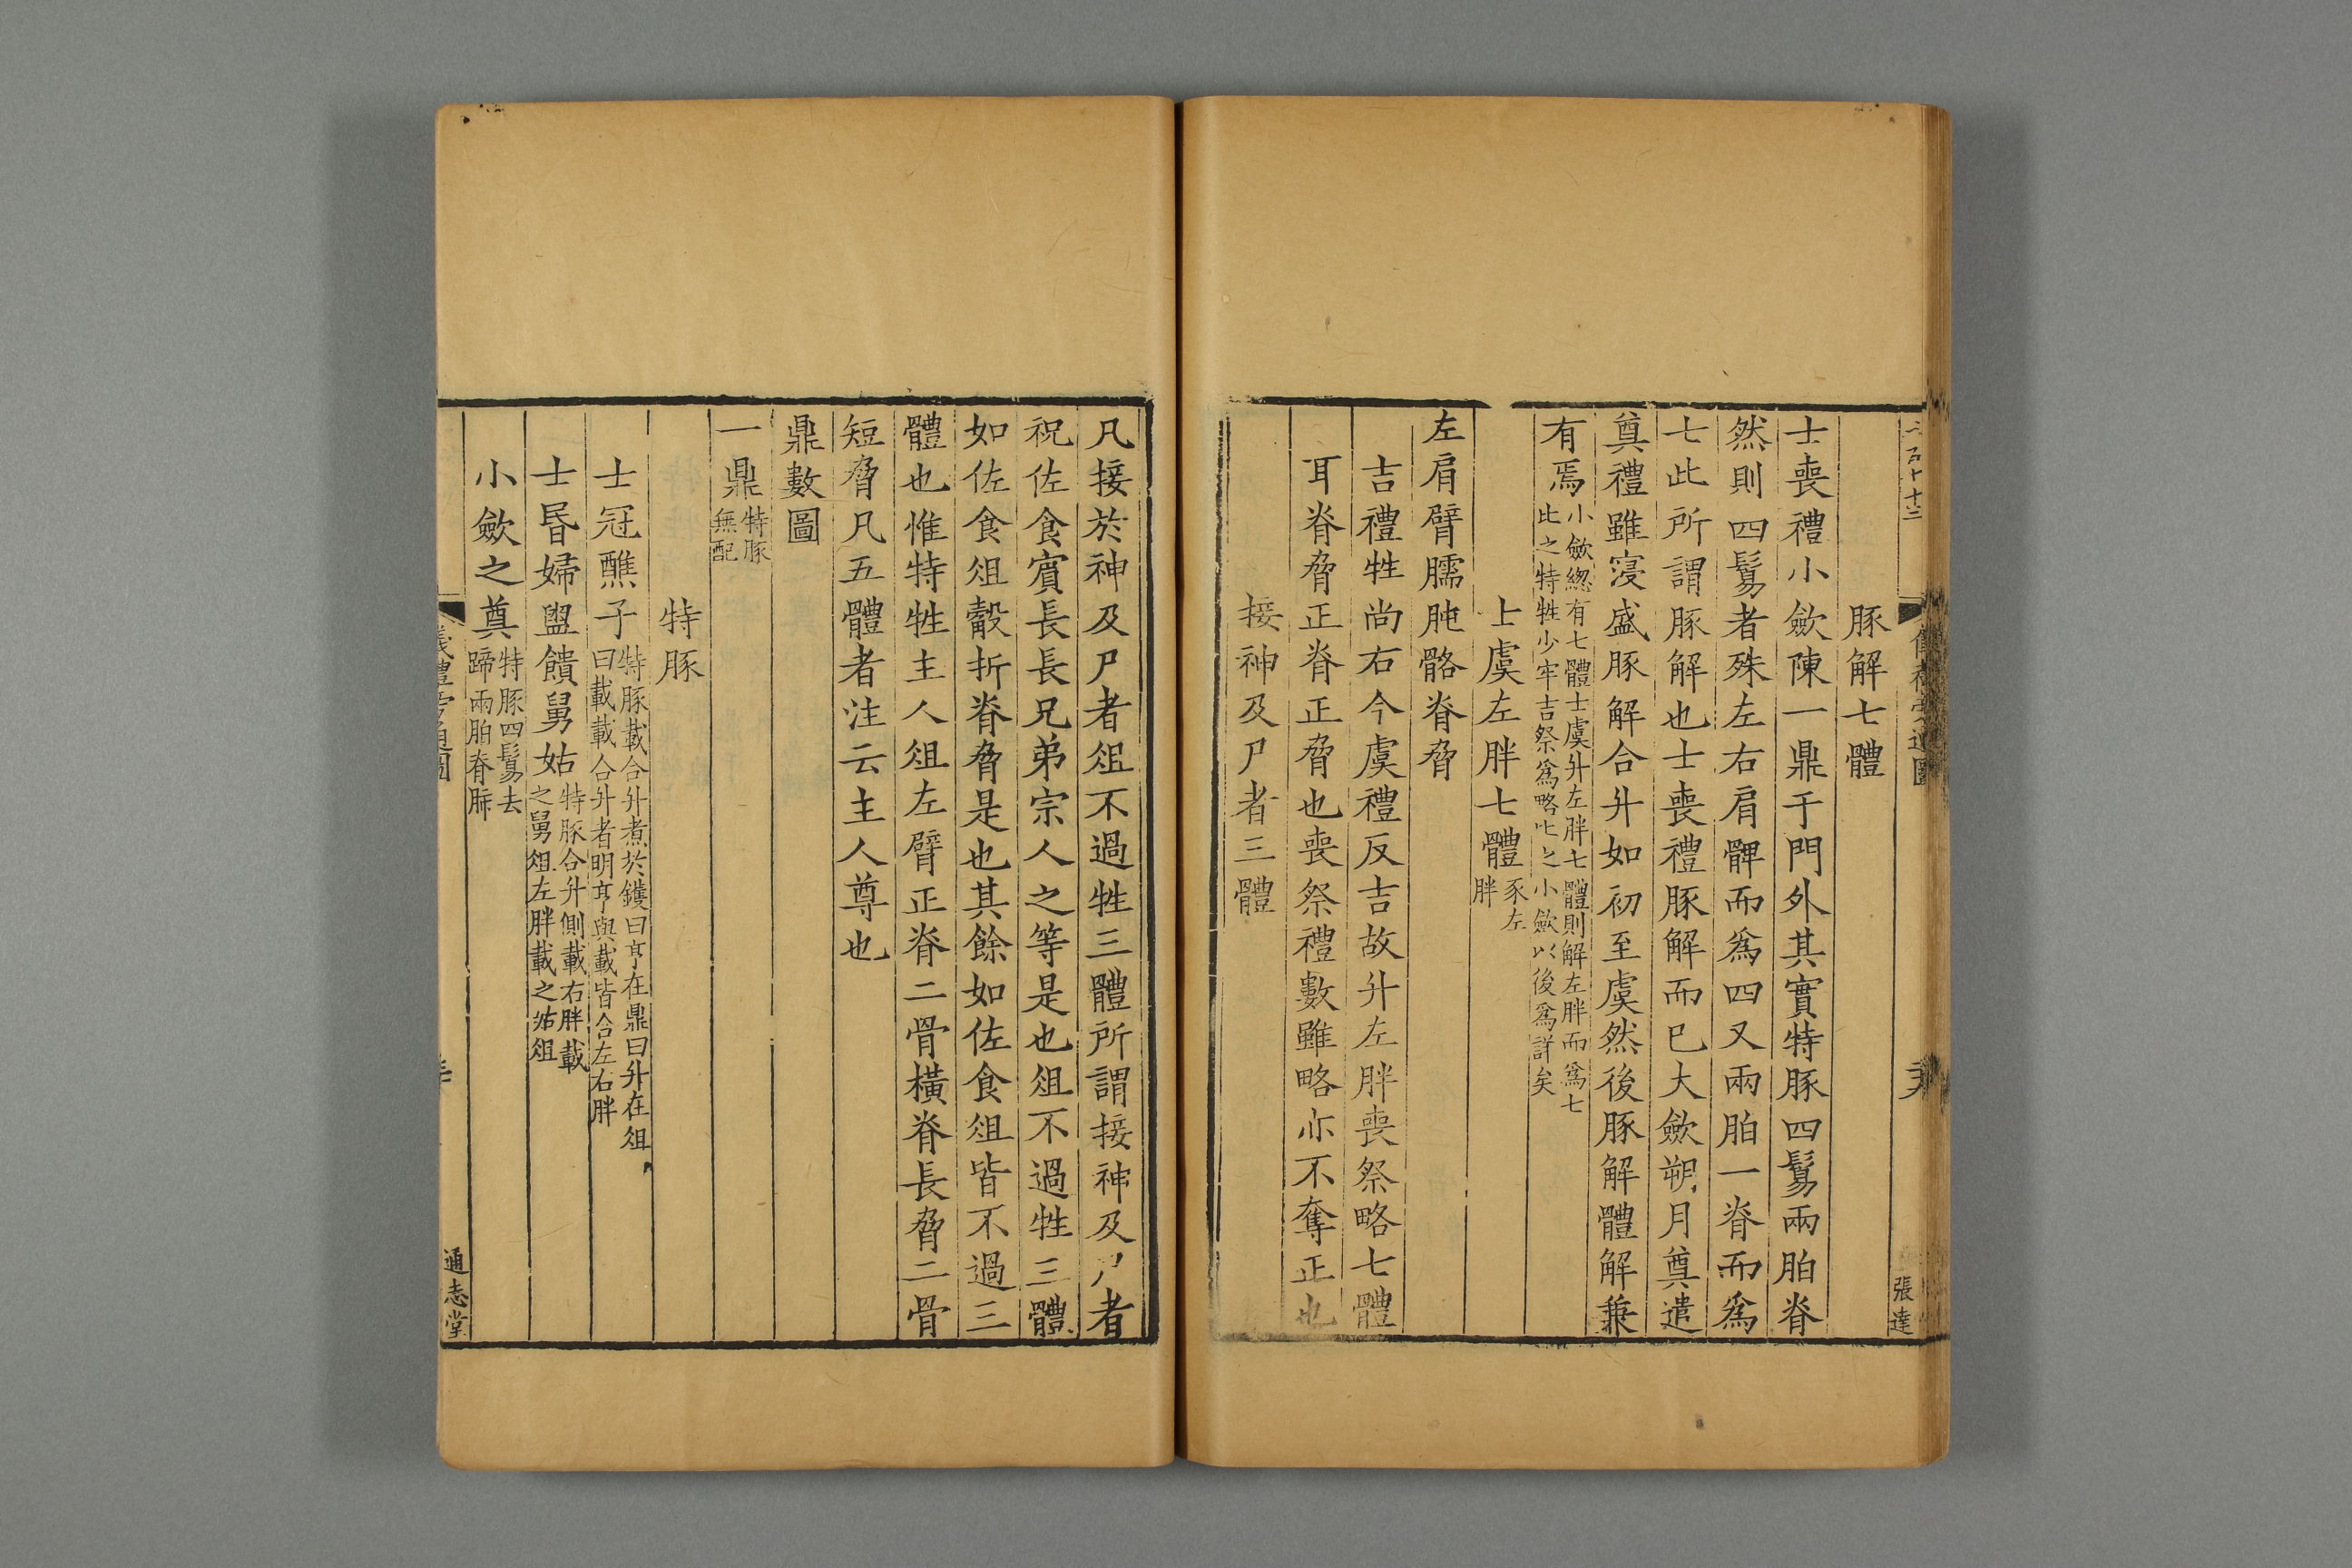 豚解七體
士喪禮小斂陳一鼎于門外其實特豚四鬄兩胉脊
然則四鬄者殊左右肩髀而爲四又兩胉一脊而爲
七此所謂豚解也士喪禮豚解而已大斂朔月奠遣
奠禮雖寖盛豚解合升如初至虞然後豚解體解兼
有焉
小斂緫有七體士虞升左胖七體則解左胖而爲七
此之特牲少牢吉祭爲略比之小斂以後爲詳矣
士虞左胖七體
豕左
胖
左肩臂臑肫骼脊脅
吉禮牲尚右今虞禮反吉故升左胖喪祭略七體
耳脊脅正脊正脅也喪祭禮數雖略亦不奪正也
接神及尸者三體
張達
凡接於神及尸者俎不過牲三體所謂接神及尸者
祝佐食賓長長兄弟宗人之等是也俎不過牲三體
如佐食俎觳折脊脅是也其餘如佐食俎皆不過三
體也惟特牲主人俎左臂正脊二骨橫脊長脅二骨
短脅凡五體者注云主人尊也
鼎數圖
一鼎
特豚
無配
特豚
士冠醮子
特豚載合升煮於鑊曰亨在鼎曰升在俎
曰載載合升者明亨與載皆合左右胖
士昏婦盥饋舅姑
特豚合升側載右胖載
之舅俎左胖載之姑俎
小斂之奠
特豚四鬄去
蹄兩胉脊肺
通志堂